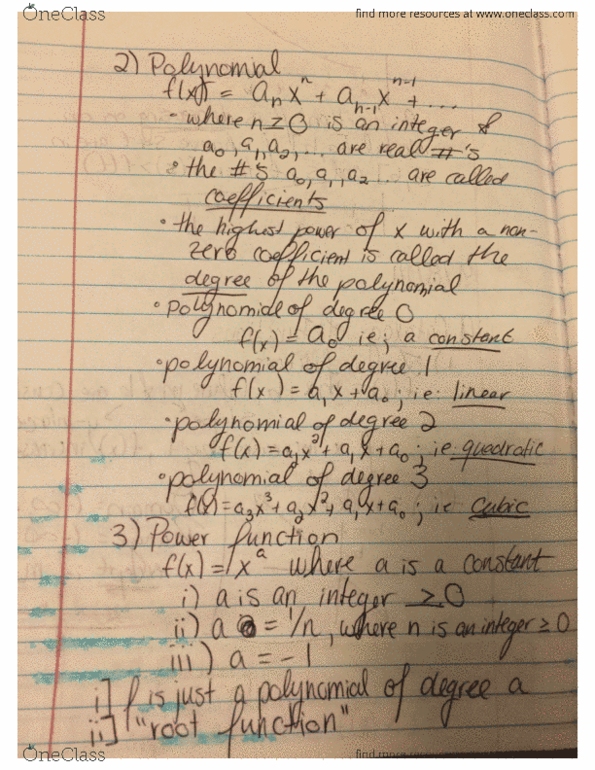 OneClass
find more resources at www.oneclass.com
2) Polynomial
f(x) = aₙxⁿ + aₙ₋₁xⁿ⁻¹ + ...
- where n ≥ 0 is an integer &
a₀, a₁, a₂, ... are real #'s
• the #'s a₀, a₁, a₂ ... are called
coefficients
• the highest power of x with a non-
zero coefficient is called the
degree of the polynomial
• polynomial of degree 0
f(x) = a₀ ie; a constant
• polynomial of degree 1
f(x) = a₁x + a₀; ie: linear
• polynomial of degree 2
f(x) = a₂x² + a₁x + a₀; ie: quadratic
• polynomial of degree 3
f(x) = a₃x³ + a₂x² + a₁x + a₀; ie cubic
3) Power function
f(x) = xᵃ where a is a constant
i) a is an integer ≥ 0
ii) a = 1/n, where n is an integer ≥ 0
iii) a = -1
i] f is just a polynomial of degree a
ii] "root function"
OneClass
find more resources at www.oneclass.com